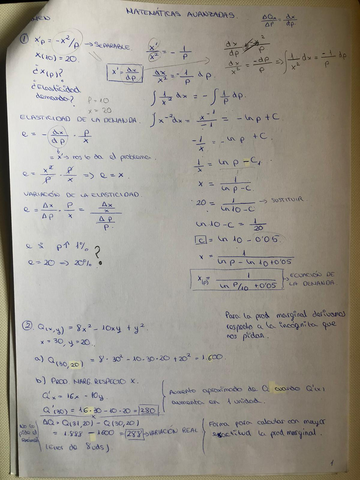 MATEMÁTICAS AVANZADAS
① x_p = -x²/p → SEPARABLE
x(10) = 20
¿x(p)?
¿Elasticidad demanda?
p = 10
x = 20
x'/x² = -1/p
x' = dx/dp
dx/x² = -1/p dp
dx/x² = -dp/p ⇒ ∫ 1/x² dx = -1/p dp
∫ 1/x² dx = -∫ 1/p dp
∫ x⁻² dx = x⁻¹/-1 = -ln p + C
-1/x = -ln p + C
1/x = ln p - C
x = 1/(ln p - C)
20 = 1/(ln 10 - C) → SUSTITUIR
ln 10 - C = 1/20
C = ln 10 - 0'05
x = 1/(ln p - ln 10 + 0'05)
x(p) = 1/(ln p/10 + 0'05) → ECUACIÓN DE LA DEMANDA
ELASTICIDAD DE LA DEMANDA
e = - Δx/Δp · p/x
e = x²/p · p/x ⇒ e = x
VARIACIÓN DE LA ELASTICIDAD
e = Δx/Δp · p/x = Δx/x / Δp/p
e si p↑ 1% ?
e = 20 → 20%
② Q(x,y) = 8x² - 10xy + y²
x = 30, y = 20.
Para la prod. marginal derivamos
respecto a la incógnita que
nos pidan.
a) Q(30,20) = 8·30² - 10·30·20 + 20² = 1.600
b) PROD MARG RESPECTO X.
Q'x = 16x - 10y
Q'(30) = 16·30 - 10·20 = 280
Aumento aproximado de Q cuando Q'(x)
aumenta en 1 unidad.
ΔQ = Q(31,20) - Q(30,20)
= 1.888 - 1600 = 288 → VARIACIÓN REAL
Forma para calcular con mayor
exactitud la prod. marginal.